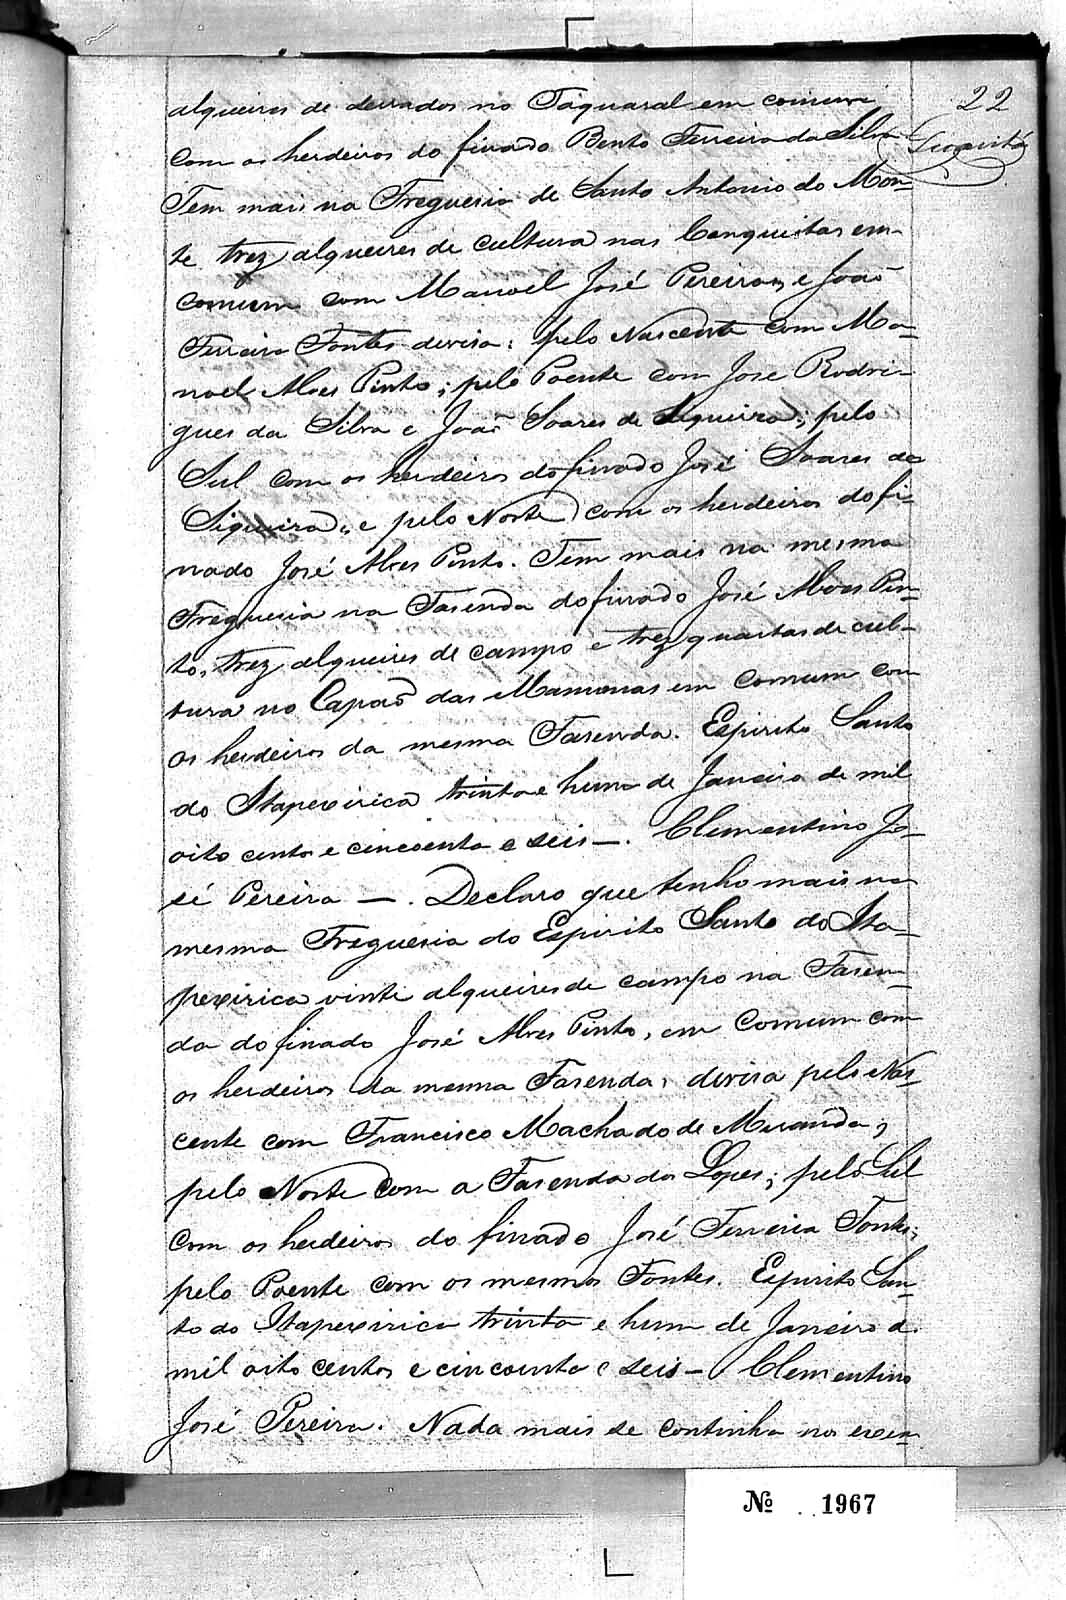 22
alqueires de serrados no Taquaral em comum
com os herdeiros do finado Bento Ferreira da Silva
Tem mais na Freguesia de Santo Antonio do Mon-
te trez alqueires de cultura nas Conquistas em
comum com Manoel José Pereira, e João
Ferreira Fontes devisa: pelo Nascente com Ma-
noel Alves Pinto; pelo Poente com Jose Rodri-
gues da Silva e João Soares de Siqueira; pelo
Sul com os herdeiros do finado José Soares de
Siqueira; e pelo Norte com os herdeiros do fi-
nado José Alves Pinto. Tem mais na mesma
Freguesia na Fasenda do finado José Alves Pin-
to, trez alqueires de campo e trez quartas de cul-
tura no Capão das Mamonas em comum com
os herdeiros da mesma Fasenda. Espirito Santo
do Itapexirica trinta e hum de Janeiro de mil
oito centos e cincoenta e seis—. Clementino Jo-
sé Pereira —. Declaro que tenho mais na
mesma Freguesia do Espirito Santo do Ita-
pexirica vinte alqueires de campo na Fasen-
da do finado José Alves Pinto, em Comum com
os herdeiros da mesma Fasenda, devisa pelo Nas-
cente com Francisco Machado de Miranda;
pelo Norte com a Fasenda dos Lopes; pelo Sul
com os herdeiros do finado José Ferreira Fontes;
pelo Poente com os mesmos Fontes. Espirito San-
to do Itapexirica trinta e hum de Janeiro de
mil oito centos e cincoenta e seis— Clementino
José Pereira. Nada mais se continha nos exem
№ 1967